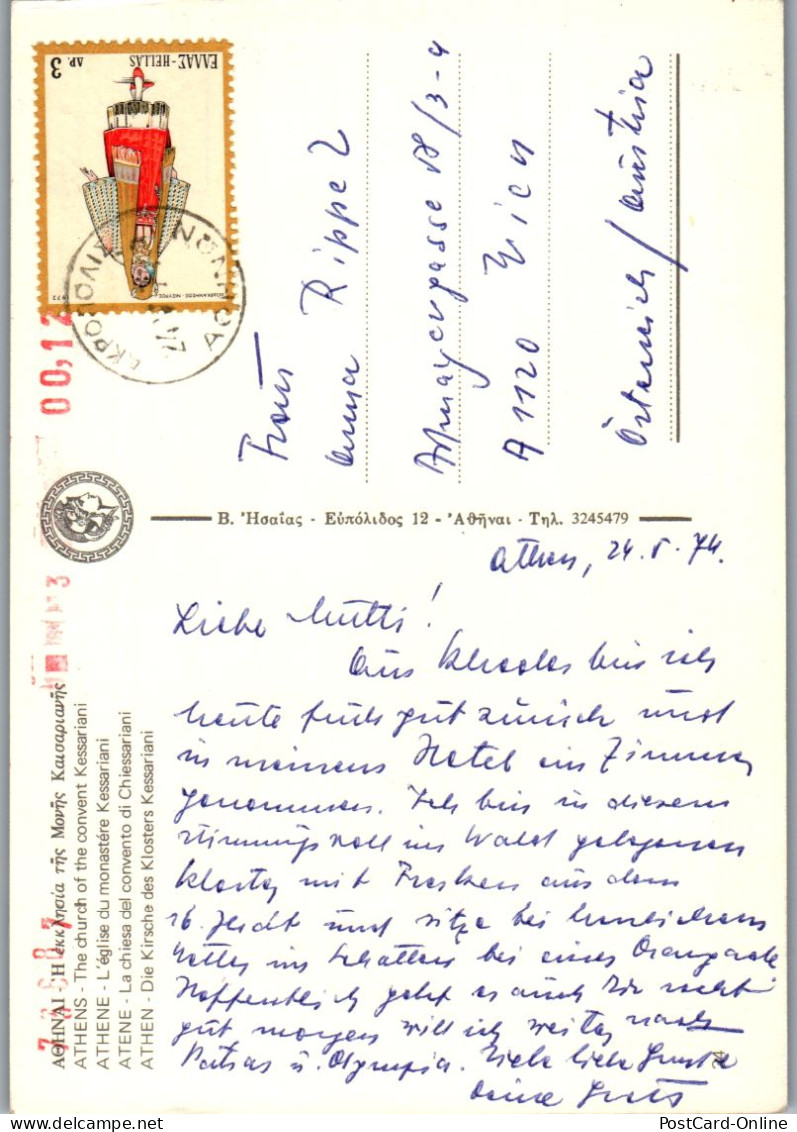 ΕΛΛΑΣ-HELLAS
ΔΡ. 3
1973
ΑΘΗΝΩΝ
ΑΚΡΟΠΟΛΙΣ
00,12
Frau
Anna Rippel
A 1120 Wien
Österreich/Austria
Β. Ἡσαΐας - Εὐπόλιδος 12 - Ἀθῆναι - Τηλ. 3245479
ΑΘΗΝΑΙ - Ἡ ἐκκλησία τῆς Μονῆς Καισαριανῆς
ATHENS - The church of the convent Kessariani
ATHENE - L'église du monastére Kessariani
ATENE - La chiesa del convento di Chiessariani
ATHEN - Die Kirsche des Klosters Kessariani
Athen, 24. 5. 74.
Liebe Mutti!
Aus Rhodos bin ich
heute früh gut zurück und
in meinem Hotel ein Zimmer
genommen. Ich bin in diesem
stimmungsvoll im Wald gelegenen
Kloster mit Fresken aus dem
16. Jhdt und sitze bei herrlichem
Wetter im Schatten bei einer Orangeade
Hoffentlich geht es auch Dir recht
gut morgen will ich weiter nach
Patras u. Olympia. Viele liebe Grüße
Deine
PostCard-Online